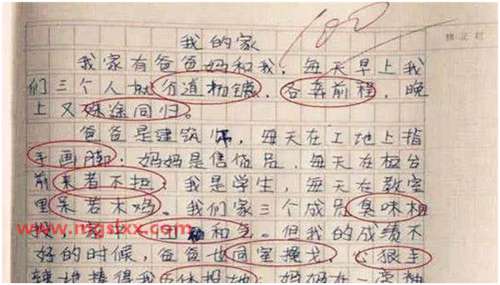 100
我的家
我家有爸爸妈和我，每天早上我
们三个人就分道扬镳，各奔前程，晚
上又殊途同归。
爸爸是建筑师，每天在工地上指
手画脚。妈妈是售货员，每天在柜台
前来者不拒。我是学生，每天在教室
里呆若木鸡。我们家三个成员臭味相
投 和气。但我的成绩不
好的时候，爸爸也同室操戈，心狠手
辣地揍得我五体投地。妈妈在一旁袖
www.mgslxx.com